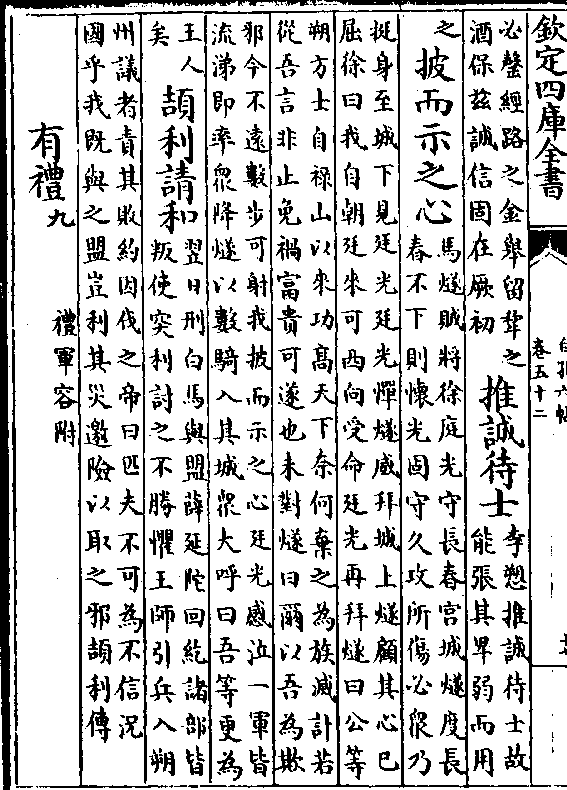 欽定四庫全書
白孔六帖
卷五十二
必罄經路之金舉留犂之
酒保茲誠信固在厥初
推誠待士
李愬推誠待士故
能張其卑弱而用
之
披而示之心
馬燧賊將徐庭光守長春宮城燧度長
春不下則懷光固守久攻所傷必衆乃
挺身至城下見廷光廷光憚燧威拜城上燧顧其心已
屈徐曰我自朝廷來可西向受命廷光再拜燧曰公等
朔方士自祿山以來功高天下奈何棄之為族滅計若
從吾言非止免禍富貴可遂也未對燧曰爾以吾為欺
邪今不遠數步可射我披而示之心廷光感泣一軍皆
流涕即率衆降燧以數騎入其城衆大呼曰吾等更為
王人
矣
頡利請和
翌日刑白馬與盟薛延陀回紇諸部皆
叛使突利討之不勝懼王師引兵入朔
州議者責其敗約因伐之帝曰匹夫不可為不信況
國乎我既與之盟豈利其災邀險以取之邪頡利傳
有禮九
禮軍容附